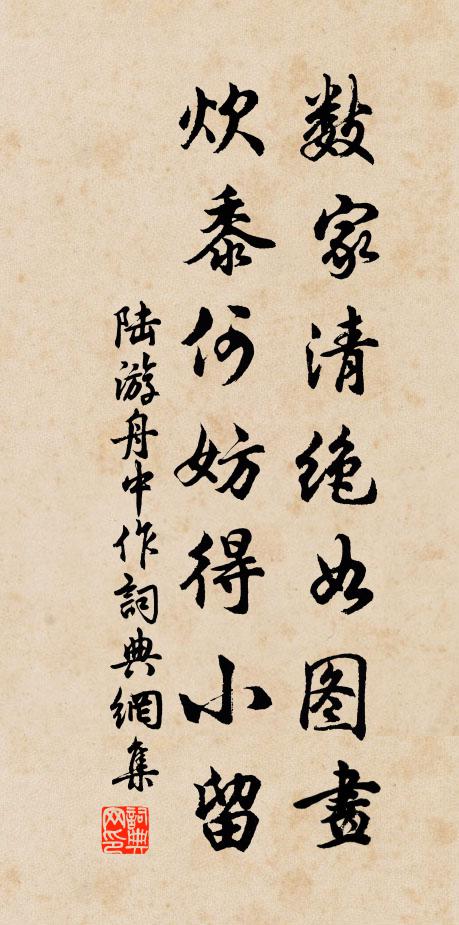 数家清绝如图畫
炊黍何妨得小留
陆游舟中作詞典網集
詞典网印